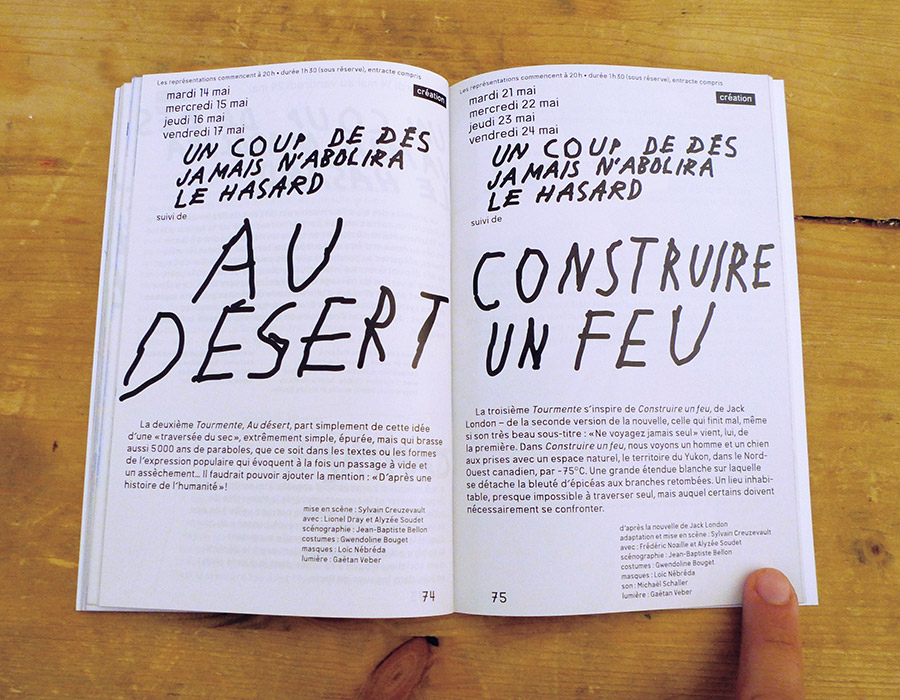 Les représentations commencent à 20h • durée 1h30 (sous réserve), entracte compris
mardi 14 mai
création
mercredi 15 mai
jeudi 16 mai
vendredi 17 mai
UN COUP DE DÉS
JAMAIS N'ABOLIRA
LE HASARD
suivi de
AU
DÉSERT
La deuxième Tourmente, Au désert, part simplement de cette idée
d'une «traversée du sec», extrêmement simple, épurée, mais qui brasse
aussi 5000 ans de paraboles, que ce soit dans les textes ou les formes
de l'expression populaire qui évoquent à la fois un passage à vide et
un assèchement... Il faudrait pouvoir ajouter la mention : «D'après une
histoire de l'humanité»!
mise en scène : Sylvain Creuzevault
avec : Lionel Dray et Alyzée Soudet
scénographie : Jean-Baptiste Bellon
costumes : Gwendoline Bouget
masques : Loïc Nébréda
lumière : Gaëtan Veber
74
Les représentations commencent à 20h • durée 1h30 (sous réserve), entracte compris
mardi 21 mai
création
mercredi 22 mai
jeudi 23 mai
vendredi 24 mai
UN COUP DE DÉS
JAMAIS N'ABOLIRA
LE HASARD
suivi de
CONSTRUIRE
UN FEU
La troisième Tourmente s'inspire de Construire un feu, de Jack
London – de la seconde version de la nouvelle, celle qui finit mal, même
si son très beau sous-titre : «Ne voyagez jamais seul» vient, lui, de
la première. Dans Construire un feu, nous voyons un homme et un chien
aux prises avec un espace naturel, le territoire du Yukon, dans le Nord-
Ouest canadien, par -75°C. Une grande étendue blanche sur laquelle
se détache la bleuté d'épicéas aux branches retombées. Un lieu inhabi-
table, presque impossible à traverser seul, mais auquel certains doivent
nécessairement se confronter.
d'après la nouvelle de Jack London
adaptation et mise en scène : Sylvain Creuzevault
avec : Frédéric Noaille et Alyzée Soudet
scénographie : Jean-Baptiste Bellon
costumes : Gwendoline Bouget
masques : Loïc Nébréda
son : Michaël Schaller
lumière : Gaëtan Veber
75